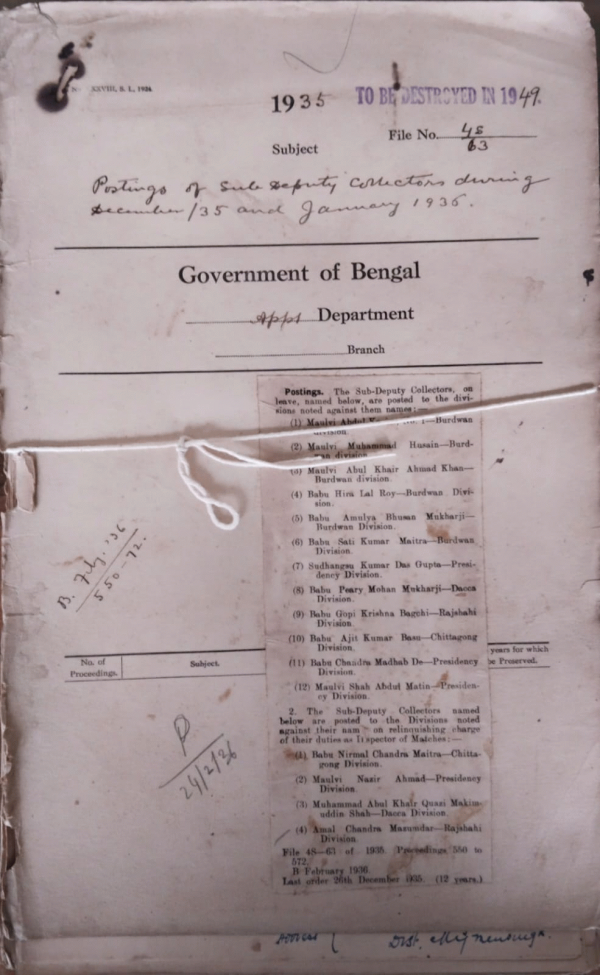 XXVIII, S. L., 1926.
1935 TO BE DESTROYED IN 1949.
File No. 4S/63
Subject
Postings of Sub Deputy Collectors during
December/35 and January 1936.
Government of Bengal
Appt Department
Branch
Postings. The Sub-Deputy Collectors, on
leave, named below, are posted to the divi-
sions noted against them names:—
(1) Maulvi Abdul —Burdwan
division.
(2) Maulvi Muhammad Husain—Burd-
wan division
(3) Maulvi Abul Khair Ahmad Khan—
Burdwan division.
(4) Babu Hira Lal Roy—Burdwan Divi-
sion.
(5) Babu Amulya Bhusan Mukharji—
Burdwan Division.
(6) Babu Sati Kumar Maitra—Burdwan
Division.
(7) Sudhangsu Kumar Das Gupta—Presi-
dency Division.
(8) Babu Peary Mohan Mukharji—Dacca
Division.
(9) Babu Gopi Krishna Bagchi—Rajshahi
Division
(10) Babu Ajit Kumar Basu—Chittagong
Division.
(11) Babu Chandra Madhab De—Presidency
Division.
(12) Maulvi Shah Abdul Matin—Presiden-
cy Division.
2. The Sub-Deputy Collectors named
below are posted to the Divisions noted
against their nam on relinquishing charge
of their duties as Inspector of Matches:—
(1) Babu Nirmal Chandra Maitra—Chitta-
gong Division.
(2) Maulvi Nazir Ahmad—Presidency
Division
(3) Muhammad Abul Khair Quazi Makim-
uddin Shah—Dacca Division.
(4) Amal Chandra Mazumdar—Rajshahi
Division.
File 4S—63 of 1935. Proceedings 550 to
572.
B February 1936.
Last order 26th December 1935. (12 years.)
B. Feby. '36
550-72.
No. of
Proceedings.
Subject.
years for which
be Preserved.
P
24/2/36
Dist.